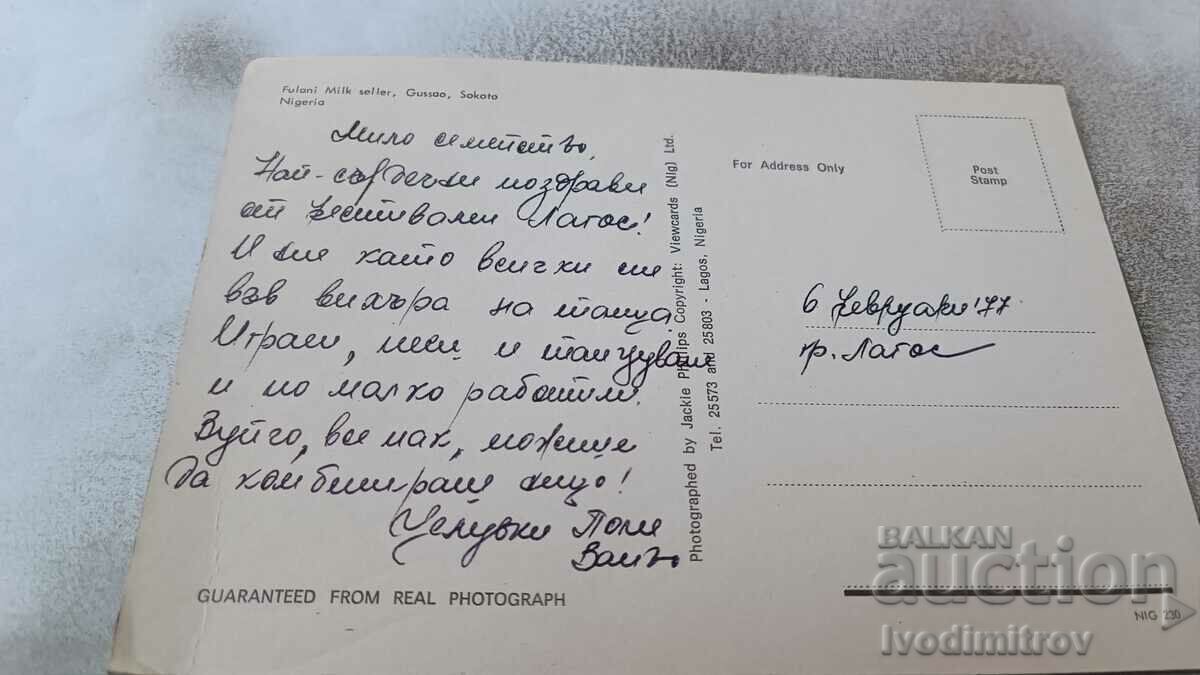 Fulani Milk seller, Gussao, Sokoto
Nigeria
Мило семейство,
Най-сърдечни поздрави
от фестивални Лагос!
И ние както всички сме
във вихъра на танца.
Играем, пеем и танцуваме
и по малко работим.
Вуйчо, все пак, можеше
да комбинираш нещо!
Целувки Поля
Ваньо
GUARANTEED FROM REAL PHOTOGRAPH
Photographed by Jackie Phillips Copyright: Viewcards (Nig) Ltd.
Tel. 25573 and 25803 - Lagos, Nigeria
For Address Only
Post
Stamp
6 февруари '77
гр. Лагос
NIG 230
BALKAN
auction
Ivodimitrov